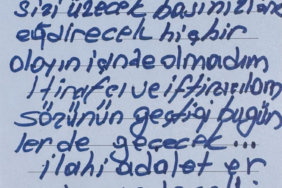 sizi üzecek başınızı öne
eğdirecek hiçbir
olayın içinde olmadım
İtirafçı ve iftiracıların
sözünün geçtiği bugün
lerde geçecek...
ilahi adalet er